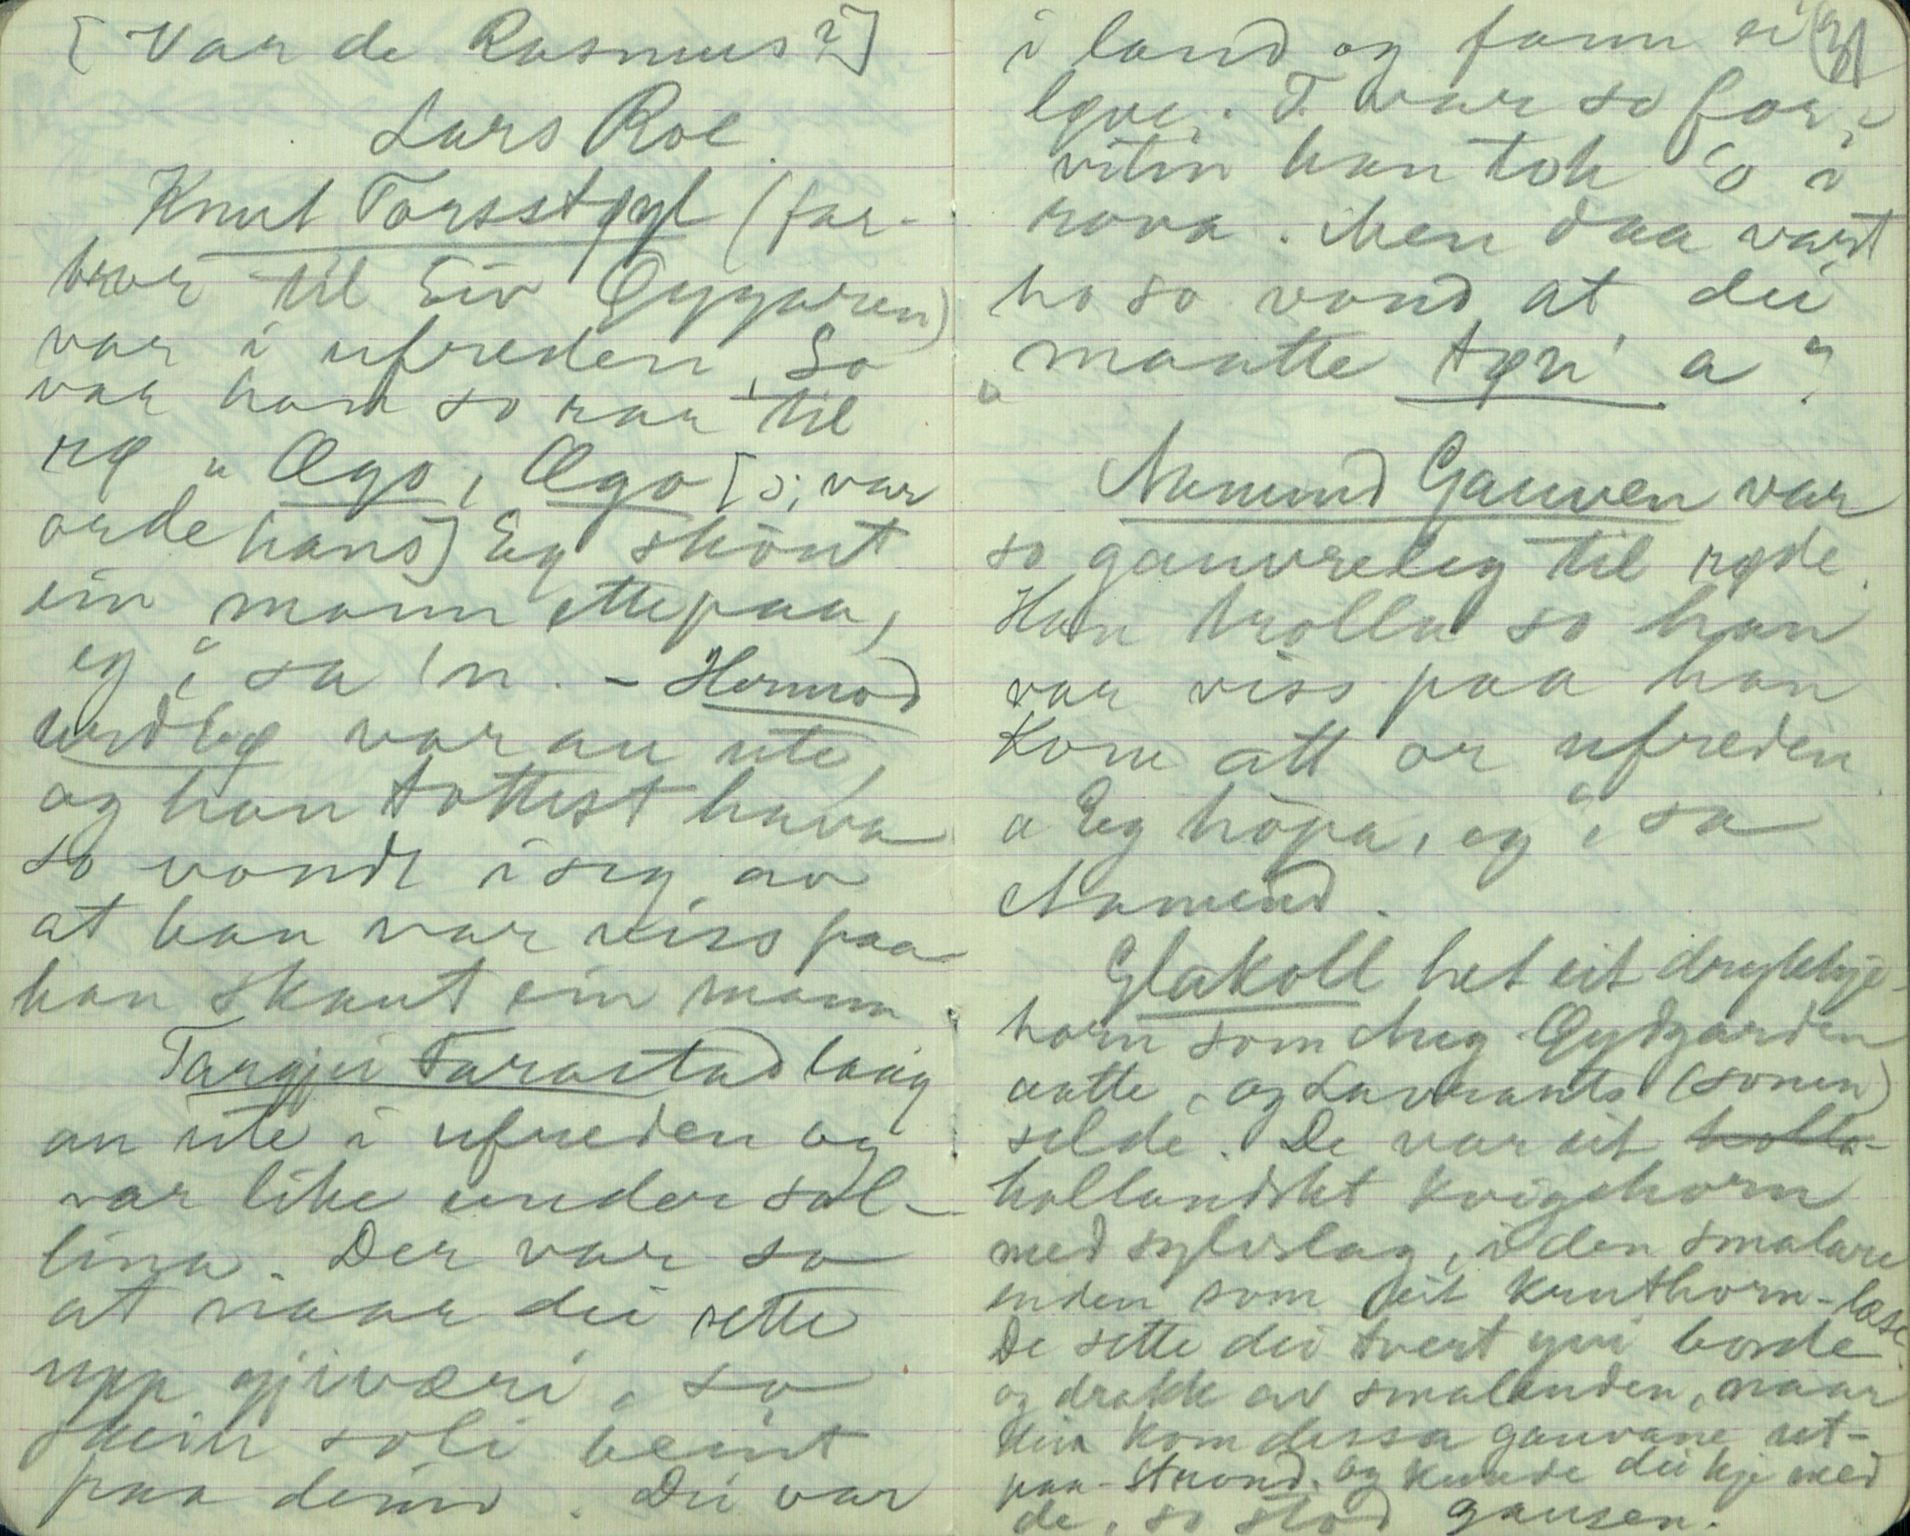 [Var de Rasmus?]
Lars Roe.
Knut Torsstøyl (far-
bror til Eiv Øygaren)
var i ufreden. So
var han so rar til
rø „Øgo, Øgo [ɔ: var
orde hans] Eg skòut
ein mann ettepaa,
eg“, sa 'n. – Hermod
urdbø var au ute,
og han tottest hava
so vondt i seg av
at han var viss paa
han skaut ein mann.
Targjei Tarastad laag
au ute i ufreden og
var like under sol-
lina. Der var so
at naar dei sette
upp gjiværi, so
skein soli beint
paa deim. Dei var
i land og fann ei
løve. T. var so for-
vitin han tok 'o i
rova. Men daa vart
ho so vond at dei
maatte tøri' a?
Aamund Gauven var
so gauvreleg til røde.
Han trolla so han
var viss paa han
kom att or ufreden
„Eg hòpa, eg“, sa
Aamund.
Glakoll het eit drykkje-
horn som Aug. Øydgarden
aatte, og Lavrants (sonen)
selde. De var eit holla-
hollandskt kvigehorn
med sylvslag, i den smalare
enden som eit krutthorn-lase.
De sette dei tvert yvi borde
og drakk av smalenden, naar
dei kom dessa gauvane ut-
paa-Strond. Og kunde dei kje med
de, so stod gausen.